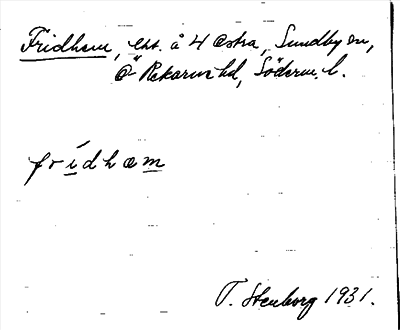 Fridhem, lht. å 4 Östra, Sundby sn,
Ö Rekarne hd, Söderm. l.
fridhæm
T. Stenborg 1931.